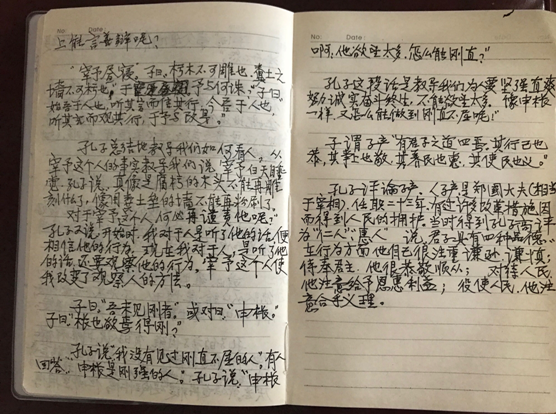 No.
Date
上能言善辩呢？
"宰予昼寝。子曰：朽木不可雕也，粪土之
墙不可杇也。于 予与何诛。"子曰："
始吾于人也，听其言而信其行，今吾于人也，
听其言而观其行，于予与改是。"
孔子总结地教导我们如何看人。从
宰予这个人的事实教导我们说，宰予白天睡
觉，孔子说，真像是腐朽的木头不能再雕
刻什么，像用粪土垒的墙不能再粉刷了，
对于宰予这个人何必再谴责他呢？"
孔子又说，开始时，我对于人是听了他的话，便
相信他的行为。现在我对于人，是听了他
的话还要观察他的行为。宰予这个人使
我改变了观察人的方法。
子曰："吾未见刚者。"或对曰："申枨。"
子曰："枨也欲，焉得刚？"
孔子说"我没有见过刚直不屈的人"，有人
回答，申枨是刚强的人。孔子说，"申枨
No.
Date:
啊，他欲望太多，怎么能刚直？"
孔子这段话是教导我们为人要坚强直爽
努力诚实奋斗终生，不能欲望太多。像申枨
一样，又怎么能做到刚直不屈呢！"
子谓子产"有君子之道四焉，其行己也
恭，其事上也敬，其养民也惠，其使民也义。"
孔子评论子产，（子产是郑国大夫（相当
于宰相），任职二十二年，有过许多改革措施因
而得到人民的拥护。当时得到孔子高评
为"仁人""惠人" 说，君子具有四种品德，
在行为方面他自己很注重谦逊、谨慎；
侍奉君主，他很恭敬顺从； 对待人民，
他注意给予恩惠利益； 役使人民，他注
意合乎义理。